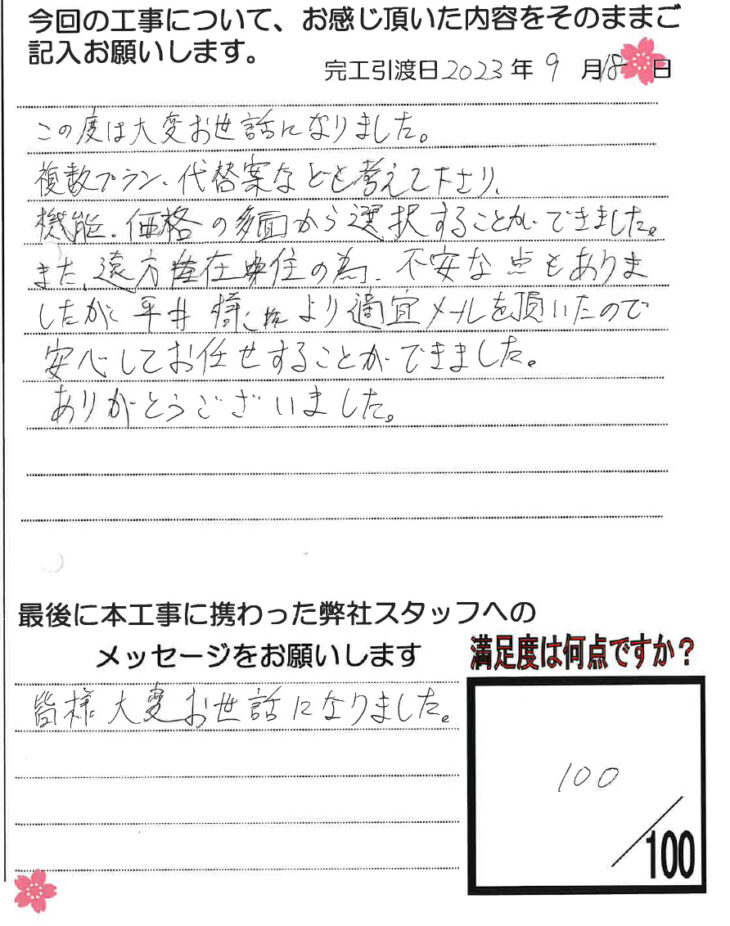 今回の工事について、お感じ頂いた内容をそのままご
記入お願いします。
完工引渡日2023年9月18日
この度は大変お世話になりました。
複数プラン、代替案などを考えて下さり、
機能、価格の多面から選択することができました。
また、遠方在住の為、不安な点もありま
したが、平井様より適宜メールを頂いたので
安心してお任せすることができました。
ありがとうございました。
最後に本工事に携わった弊社スタッフへの
メッセージをお願いします
満足度は何点ですか？
皆様大変お世話になりました。
100
/100